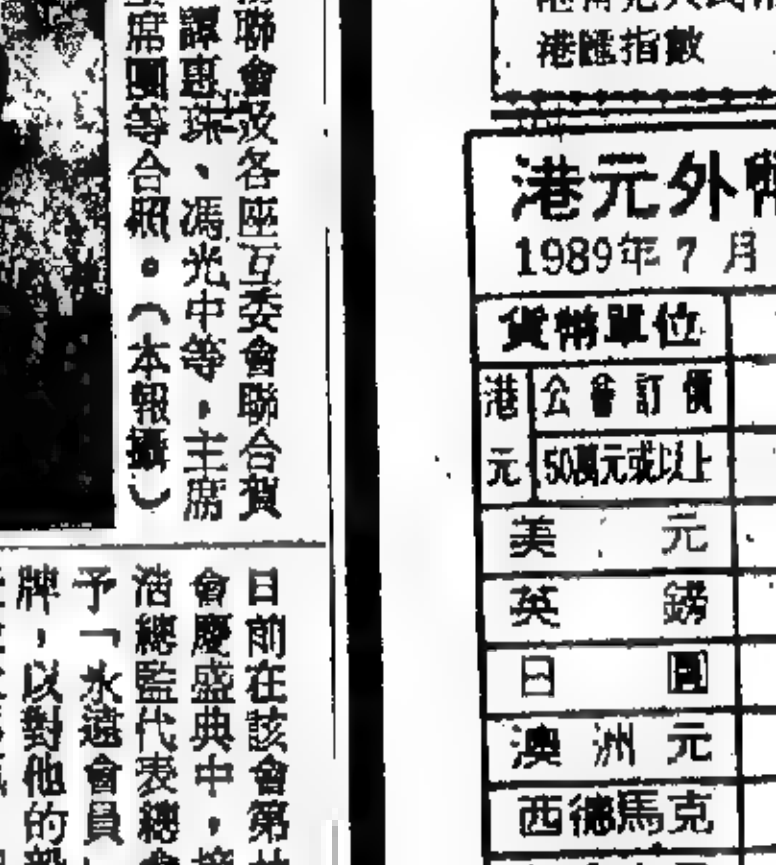 聯會及各座互委會聯合賀
譚惠珠、馮光中等,主席
席團等合照。(本報攝)
日前在該會第
會慶盛典中,
涵總監代表總會
予「永遠會員
牌,以對他的
港匯指數
港元外幣
1989年7月
貨幣單位
港元
公會訂價
50萬元或以上
美元
英鎊
日圓
澳洲元
西德馬克